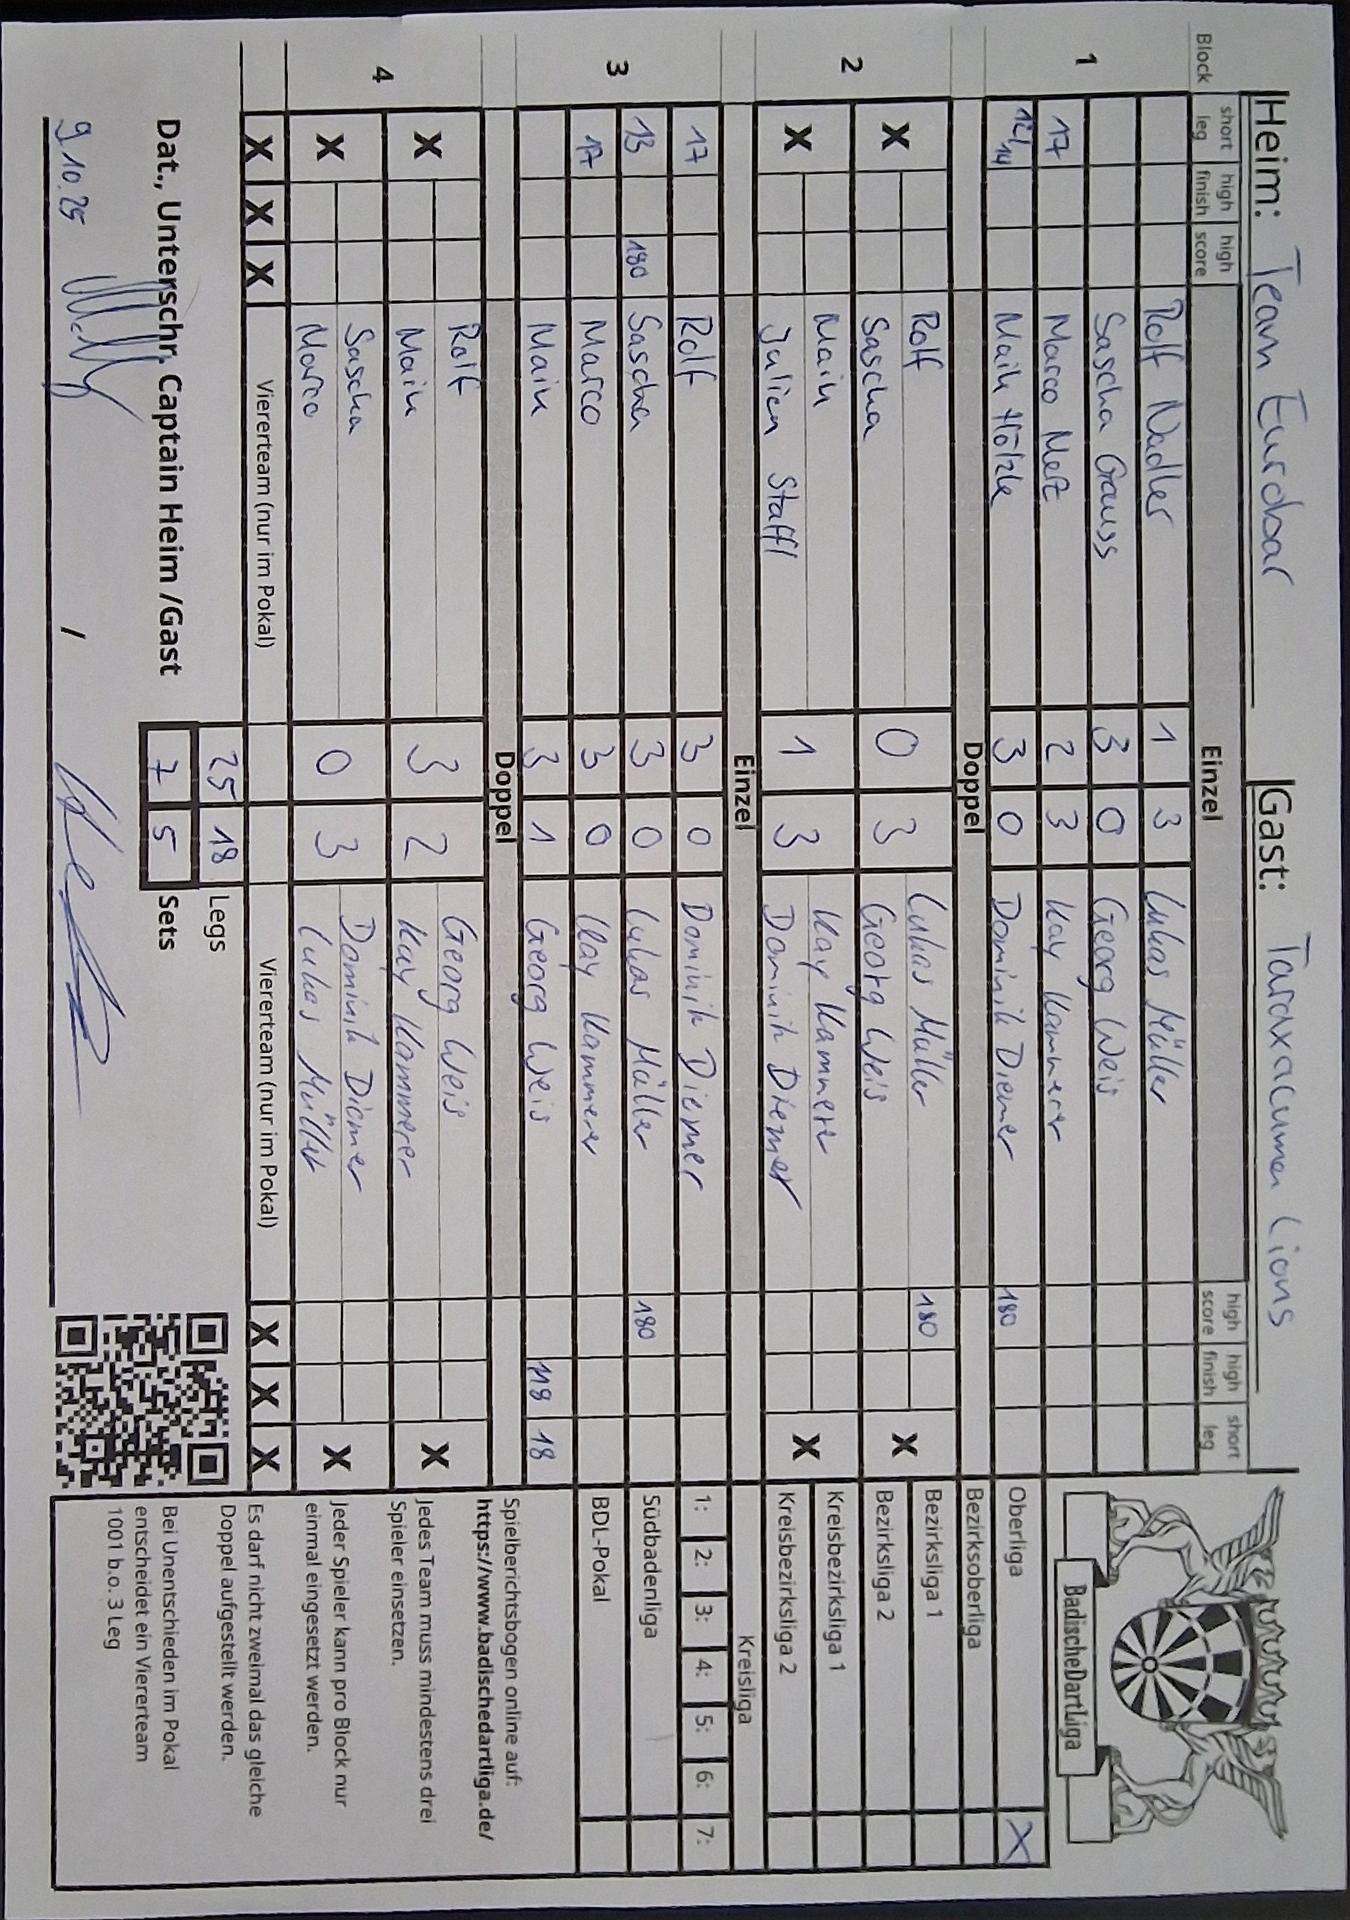 Heim: Team Eurobar Gast: Taraxacumer Lions
Block short leg high finish high score Einzel high score high finish short leg
1 Rolf Nadler 1 3 Lukas Müller
Sascha Grauss 3 0 Georg Weis
17 Marco Metz 2 3 Kay Kammerer
12/14 Maik Hölzle 3 0 Dominik Diemer 180
Doppel
2 X Rolf 0 3 Lukas Müller 180 X
Sascha Georg Weis
X Maik 1 3 Kay Kammerer X
Julien Staffl Dominik Diemer
Einzel
3 17 Rolf 3 0 Dominik Diemer
13 180 Sascha 3 0 Lukas Müller 180
17 Marco 3 0 Kay Kammerer
Maik 3 1 Georg Weis 118 18
Doppel
4 X Rolf 3 2 Georg Weis X
Maik Kay Kammerer
X Sascha 0 3 Dominik Diemer X
Marco Lukas Müller
X X X Viererteam (nur im Pokal) Viererteam (nur im Pokal) X X X
25 18 Legs
Dat., Unterschr. Captain Heim /Gast 7 5 Sets
9.10.25 /
BadischeDartLiga
Oberliga X
Bezirksoberliga
Bezirksliga 1
Bezirksliga 2
Kreisbezirksliga 1
Kreisbezirksliga 2
Kreisliga
1: 2: 3: 4: 5: 6: 7:
Südbadenliga
BDL-Pokal
Spielberichtsbogen online auf:
https://www.badischedartliga.de/
Jedes Team muss mindestens drei
Spieler einsetzen.
Jeder Spieler kann pro Block nur
einmal eingesetzt werden.
Es darf nicht zweimal das gleiche
Doppel aufgestellt werden.
Bei Unentschieden im Pokal
entscheidet ein Viererteam
1001 b.o. 3 Leg